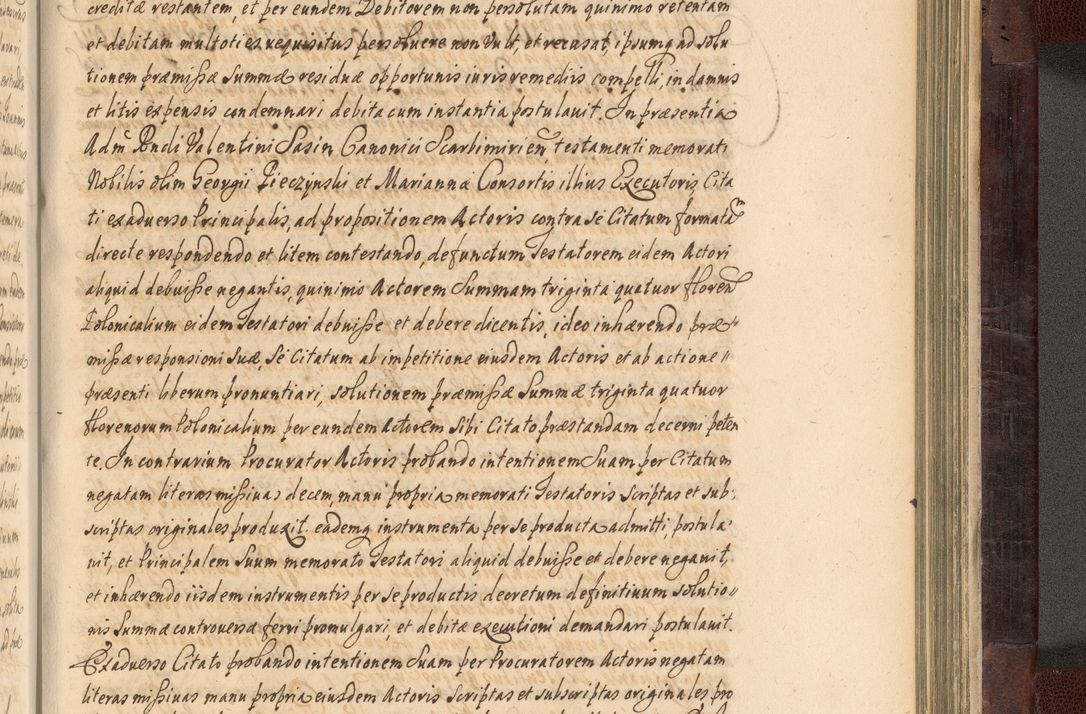 creditæ restantem, et per eundem Debitorem non persolutam quinimo retentam
et debitam multoties requisitus persoluere non vult, et recusat, ipsumq ad solu
tionem præmissæ summæ residuæ opportunis iuris remediis compelli, in damnis
et litis expensis condemnari debita cum instantia postulauit. In præsentia
Adm Rndi Valentini Sasin Canonici Scarbimirien testamenti memorati
Nobilis olim Georgii Pieczynski et Marianna Consortis illius Executoris Cita
ti ex aduerso Principalis, ad propositionem Actoris contra se Citatum formatam
directe respondendo et litem contestando, defunctum Testatorem eidem Actori
aliquid debuisse negantis, quinimo Actorem Summam triginta quatuor floren
Polonicalium eidem Testatori debuisse et debere dicentis, ideo inhærendo præ
missæ responsioni suæ, se Citatum ab impetitione eiusdem Actoris et ab actione
præsenti liberum pronuntiari, solutionem præmissæ Summæ triginta quatuor
florenorum Polonicalium per eundem Actorem sibi Citato præstandam decerni peten
te. In contrarium Procurator Actoris probando intentionem suam per Citatum
negatam literas missiuas decem, manu propria memorati Testatoris scriptas et sub:
scriptas originales produxit. eademq instrumenta per se producta admitti, postula
uit, et Principalem suum memorato Testatori aliquid debuisse et debere negauit,
et inhærendo iisdem instrumentis per se productis decretum definitiuum solutio
nis Summæ controuersæ ferri promulgari, et debitæ executioni demandari postulauit.
Ex aduerso Citato probando intentionem suam per Procuratorem Actoris negatam
literas missiuas manu propria eiusdem Actoris scriptas et subscriptas originales pro